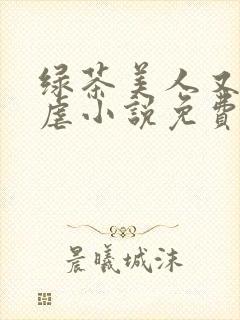 绿茶美人又
虐小說免費
晨曦城沫